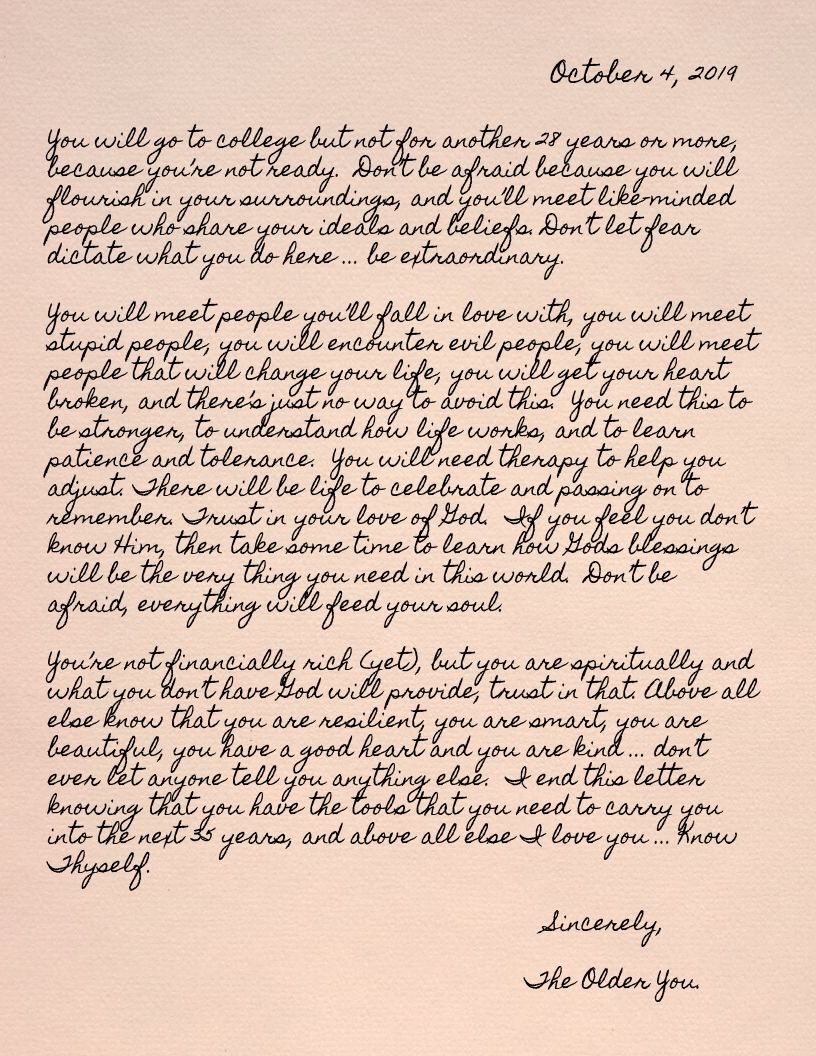 October 4, 2019
You will go to college but not for another 28 years or more,
because you're not ready. Don't be afraid because you will
flourish in your surroundings, and you'll meet like-minded
people who share your ideals and beliefs. Don't let fear
dictate what you do here ... be extraordinary.
You will meet people you'll fall in love with, you will meet
stupid people, you will encounter evil people, you will meet
people that will change your life, you will get your heart
broken, and there's just no way to avoid this. You need this to
be stronger, to understand how life works, and to learn
patience and tolerance. You will need therapy to help you
adjust. There will be life to celebrate and passing on to
remember. Trust in your love of God. If you feel you don't
know Him, then take some time to learn how Gods blessings
will be the very thing you need in this world. Don't be
afraid, everything will feed your soul.
You're not financially rich (yet), but you are spiritually and
what you don't have God will provide, trust in that. Above all
else know that you are resilient, you are smart, you are
beautiful, you have a good heart and you are kind ... don't
ever let anyone tell you anything else. I end this letter
knowing that you have the tools that you need to carry you
into the next 35 years, and above all else I love you ... Know
Thyself.
Sincerely,
The Older You.